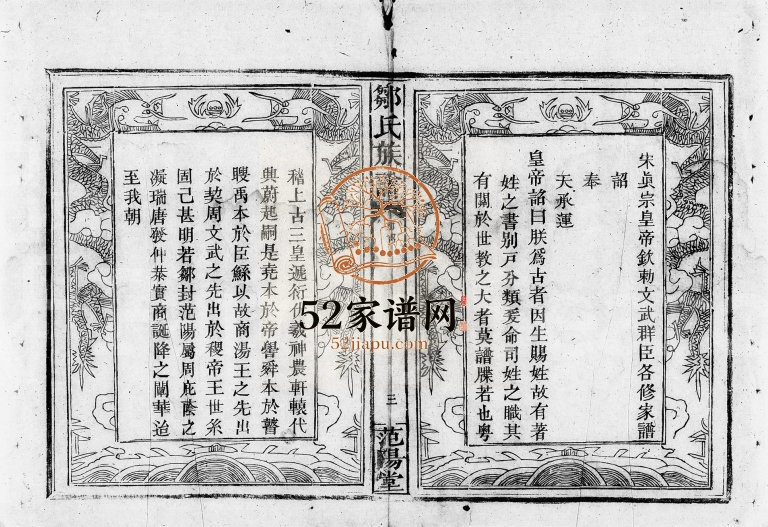 宋真宗皇帝欽勅文武群臣各修家譜
詔
奉
天承運
皇帝詔曰朕爲古者因生賜姓故有著
姓之書別戸分類爰命司姓之職其
有關於世教之大者莫譜牒若也粤
鄒氏族譜
三
范陽堂
稽上古三皇遞衍伏羲神農軒轅代
典蔚起嗣是堯本於帝嚳舜本於瞽
瞍禹本於臣鯀以故商湯王之先出
於契周文武之先出於稷帝王世系
固己甚明若鄒封范陽屬周庇蔭之
凝瑞唐發仲葉實商誕降之闡華迨
至我朝
52家谱网
52jiapu.com